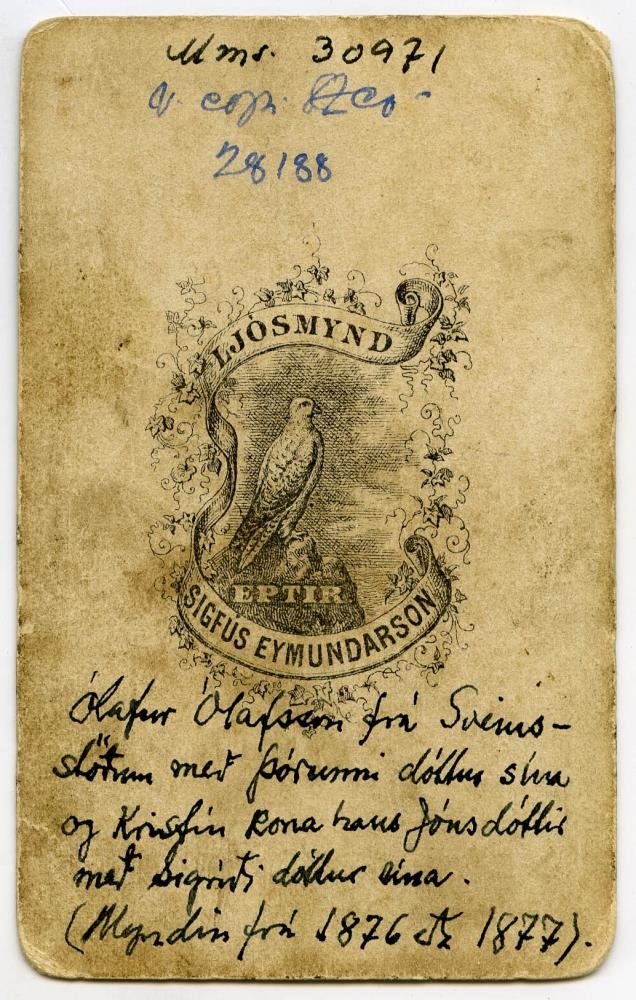 Mms. 30971
28188
LJOSMYND
EPTIR
SIGFUS EYMUNDARSON
Ólafur Ólafsson frá Sveins-
stöðum með Þórunni dóttur sína
og Kristín kona hans Jónsdóttir
með Sigríði dóttur sína.
(Myndin frá 1876 1877).